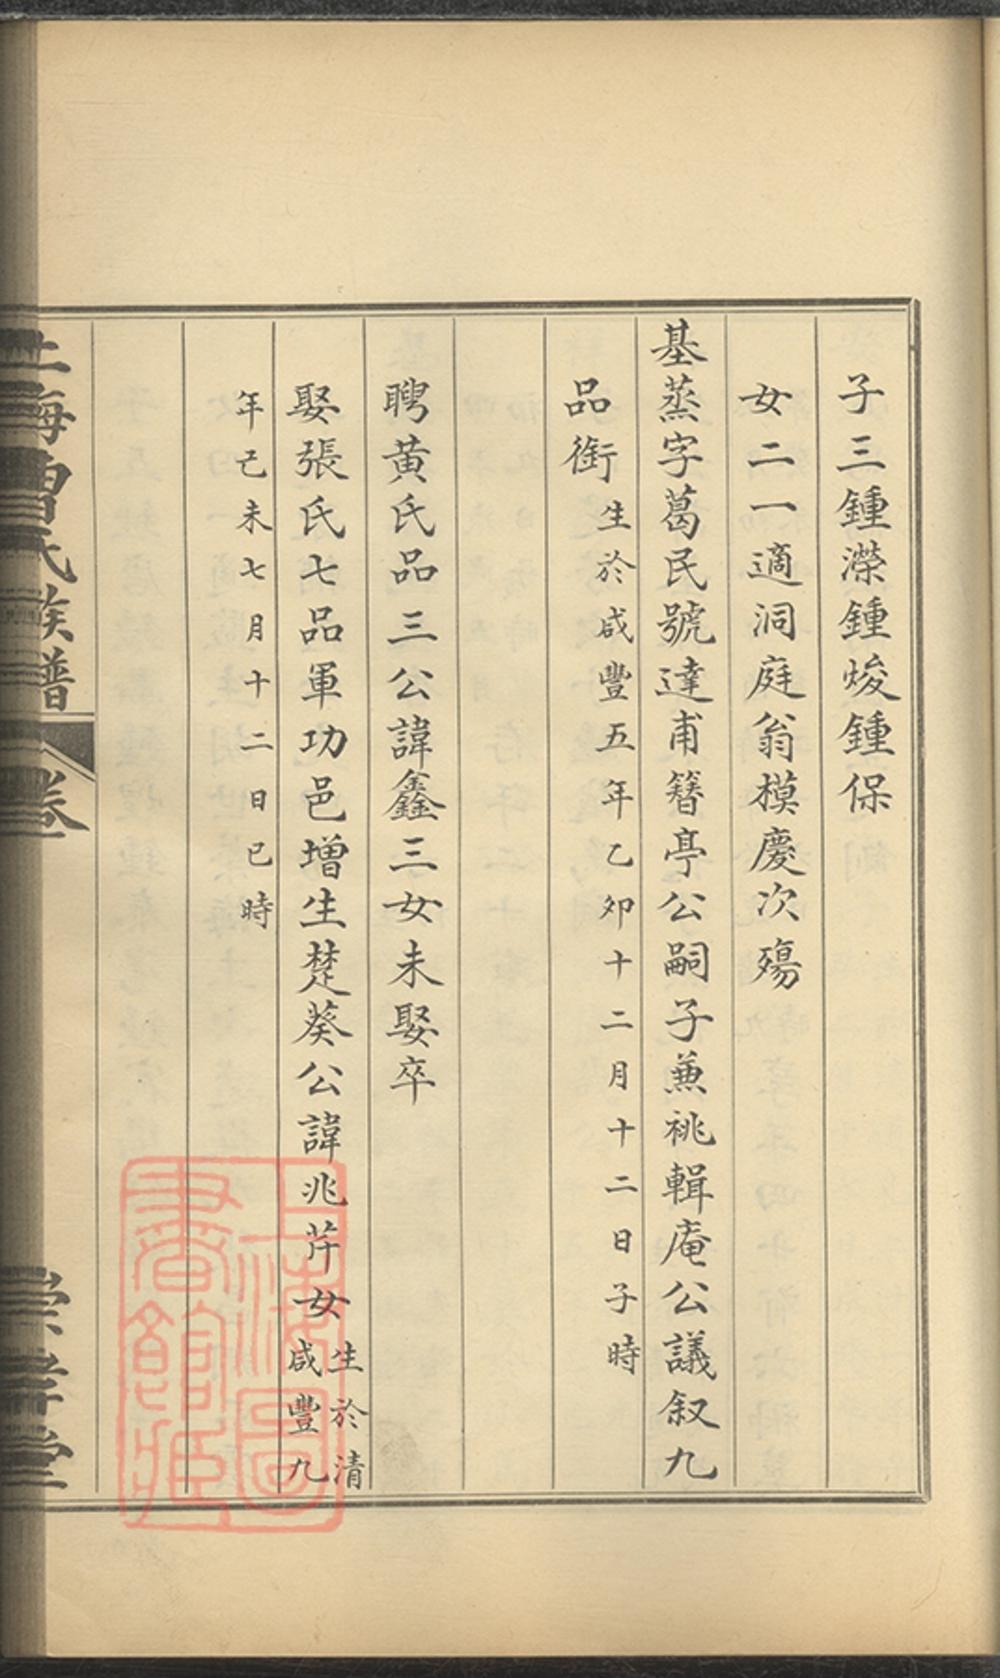 子三鍾濚鍾焌鍾保
女二一適洞庭翁模慶次殤
基蒸字葛民號達甫簪亭公嗣子兼祧輯庵公議叙九
品銜生於咸豐五年乙卯十二月十二日子時
聘黃氏品三公諱鑫三女未娶卒
娶張氏七品軍功邑增生楚葵公諱兆芹女生於清
咸豐九
年己未七月十二日巳時
上海曹氏族譜
卷
崇孝堂
上海圖
書館藏